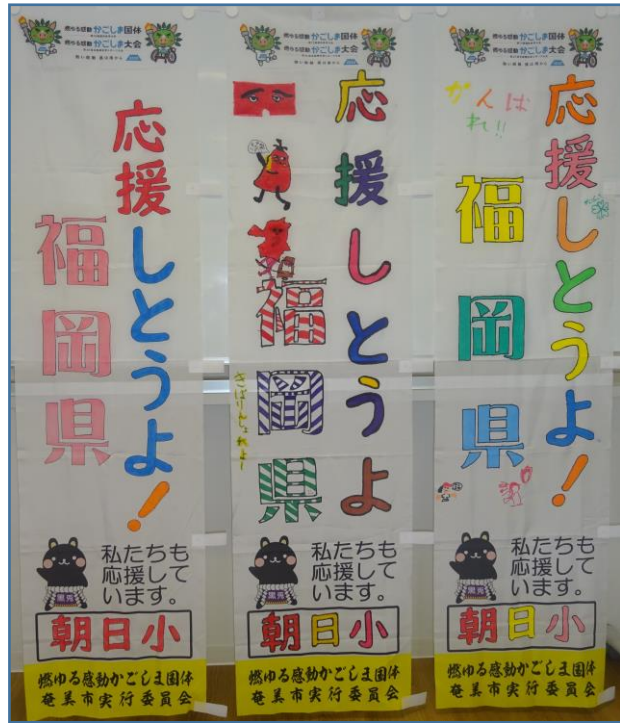 燃ゆる感動かごしま国体
燃ゆる感動かごしま大会
熱い鼓動 風は南から
応援しとうよ!
福岡県
私たちも
応援して
います。
朝日小
燃ゆる感動かごしま国体
奄美市実行委員会
燃ゆる感動かごしま国体
燃ゆる感動かごしま大会
熱い鼓動 風は南から
応援しとうよ
福岡県
きばりんしょれよー
私たちも
応援して
います。
朝日小
燃ゆる感動かごしま国体
奄美市実行委員会
燃ゆる感動かごしま国体
燃ゆる感動かごしま大会
熱い鼓動 風は南から
応援しとうよ!
がんば
れ!!
福岡県
私たちも
応援して
います。
朝日小
燃ゆる感動かごしま国体
奄美市実行委員会